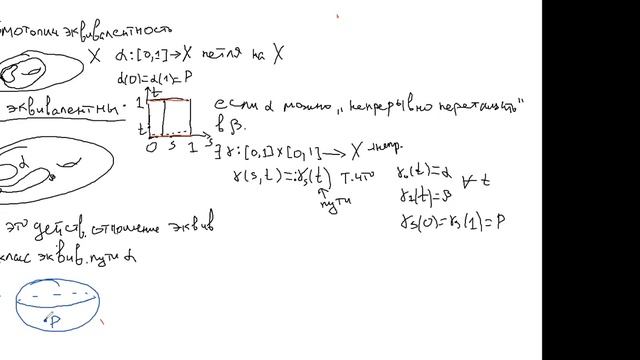 мотопич эквивалентность
X α:[0,1]→X петля на X
α(0)=α(1)=P
эквивалентны.
если α можно „непрерывно перетащить"
в β.
1 t
t
0 s 1 s
∃ γ:[0,1]×[0,1]→X непр.
γ(s,t)=:γₛ(t) т.что
пути
γ₀(t)=α
γ₁(t)=β ∀ t
γₛ(0)=γₛ(1)=P
это действ. отношение эквив
класс эквив. пути α
P